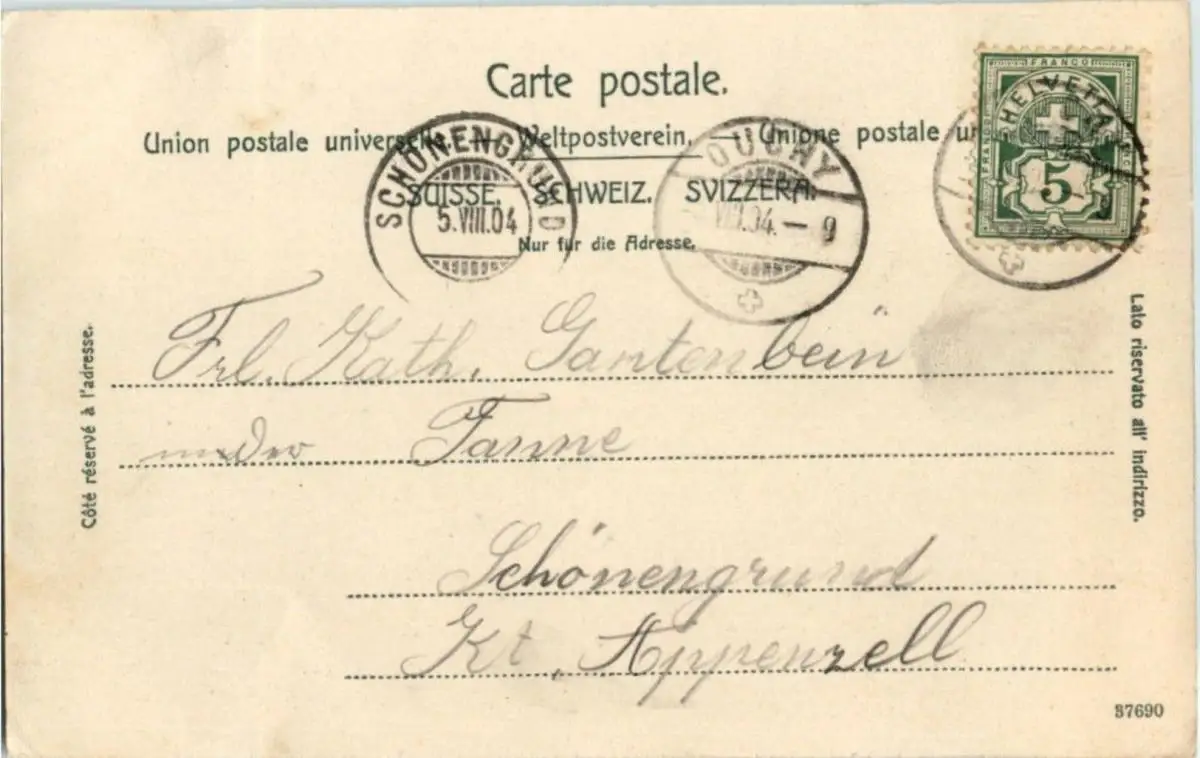 Carte postale.
Union postale universelle. — Weltpostverein. — Unione postale un
SUISSE. SCHWEIZ. SVIZZERA.
Nur für die Adresse.
SCHÖNENGRUND
5.VIII.04
OUCHY
VIII.04.— 9
FRANCO
HELVETIA
5
Côté réservé à l'adresse.
Lato riservato all' indirizzo.
Frl. Kath. Gantenbein
Tanne
Schönengrund
Kt. Appenzell
37690